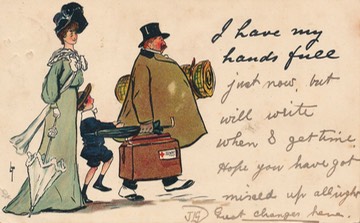 I have my
hands full
just now, but
will write
when I get time.
Hope you have got
mixed up allright
Great changes here.